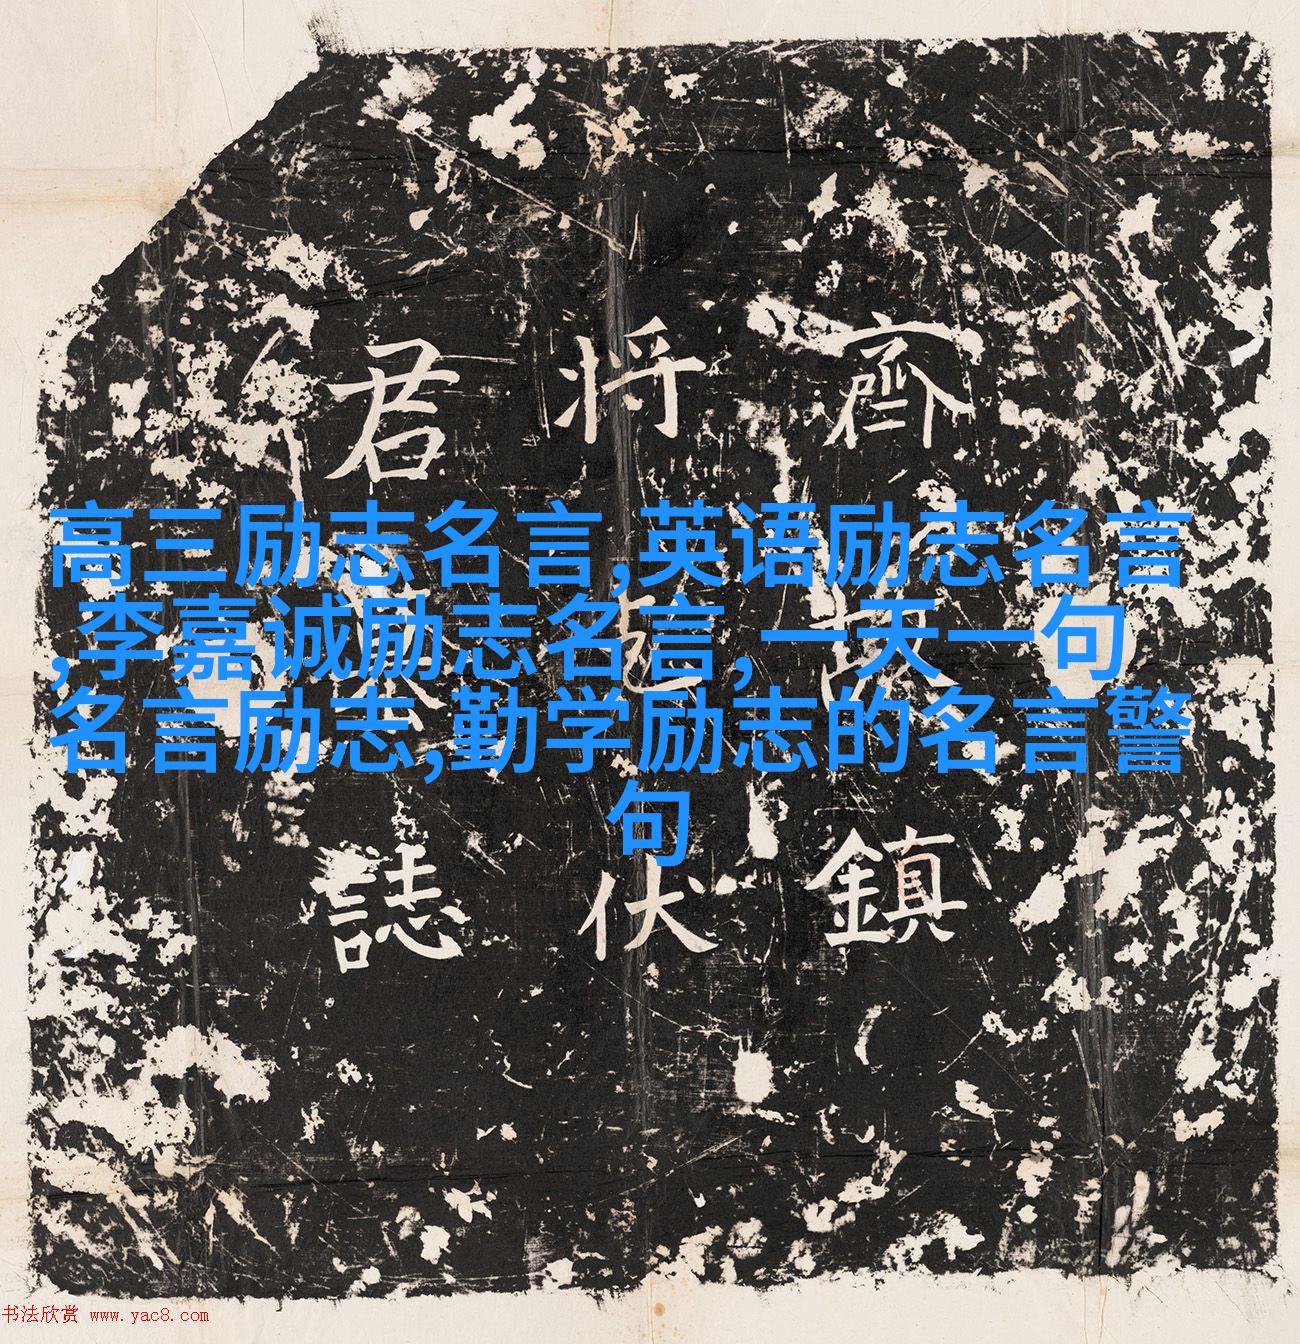 齊故鎮
将乞伏
君墓誌
高三励志名言,英语励志名言
,李嘉诚励志名言, 一天一句
名言励志,勤学励志的名言警
句
书法欣赏 www.yac8.com